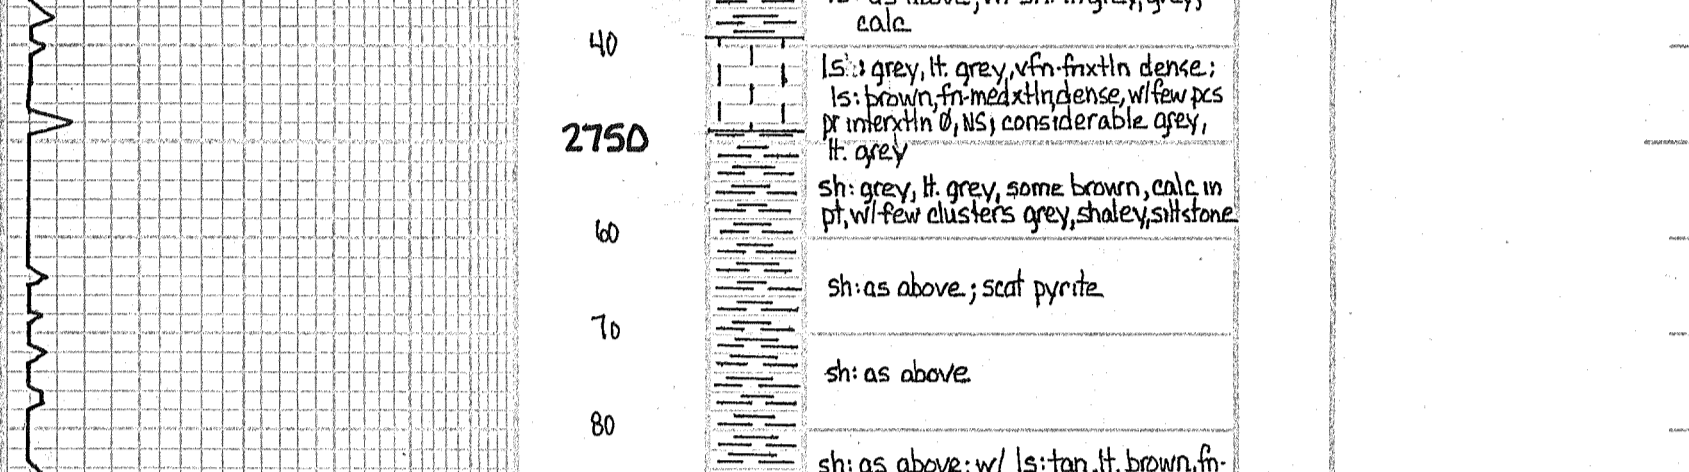 calc
40
ls: grey, lt. grey, vfn-fnxtln dense;
ls: brown, fn-medxtln, dense, w/ few pcs
pr interxtln Ø, NS; considerable grey,
2750
lt. grey
sh: grey, lt. grey, some brown, calc in
pt, w/ few clusters grey, shaley, siltstone
60
sh: as above; scat pyrite
70
sh: as above
80
sh: as above; w/ ls: tan, lt. brown, fn-